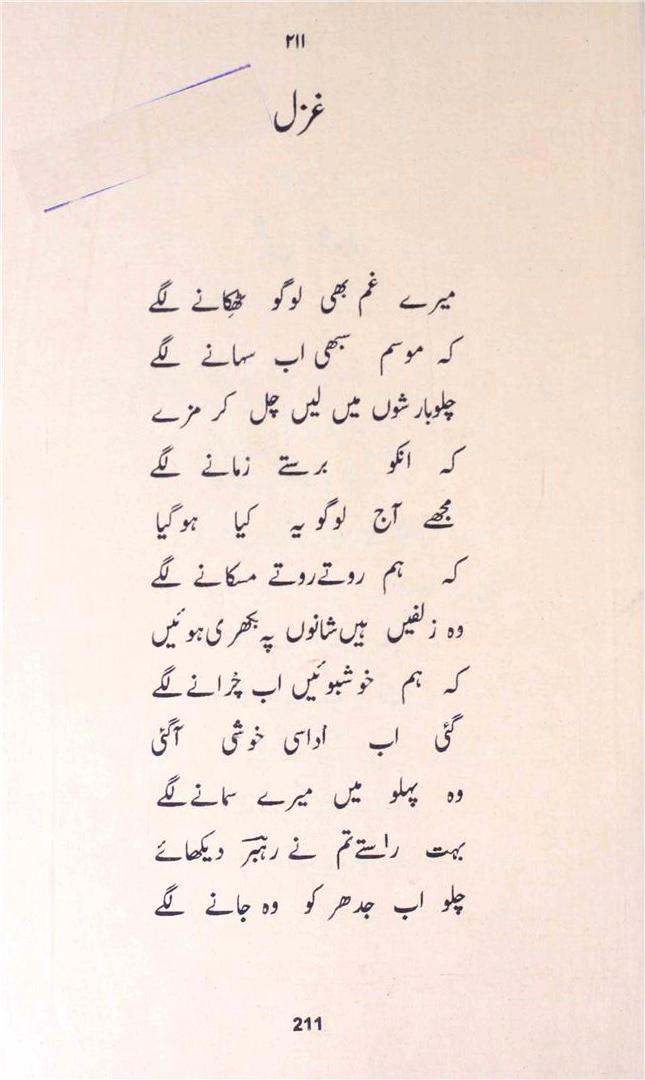 ۲۱۱
غزل
میرے غم بھی لوگو ٹھکِانے لگے
کہ موسم سبھی اب سہانے لگے
چلو بارشوں میں لیں چل کر مزے
کہ انکو برستے زمانے لگے
مجھے آج لوگو یہ کیا ہوگیا
کہ ہم روتے روتے مسکانے لگے
وہ زلفیں ہیں شانوں پہ بکھری ہوئیں
کہ ہم خوشبوئیں اب چُرانے لگے
گئی اب اداسی خوشی آگئی
وہ پہلو میں میرے سمانے لگے
بہت راستے تم نے رہبرؔ دیکھائے
چلو اب جدھر کو وہ جانے لگے
211